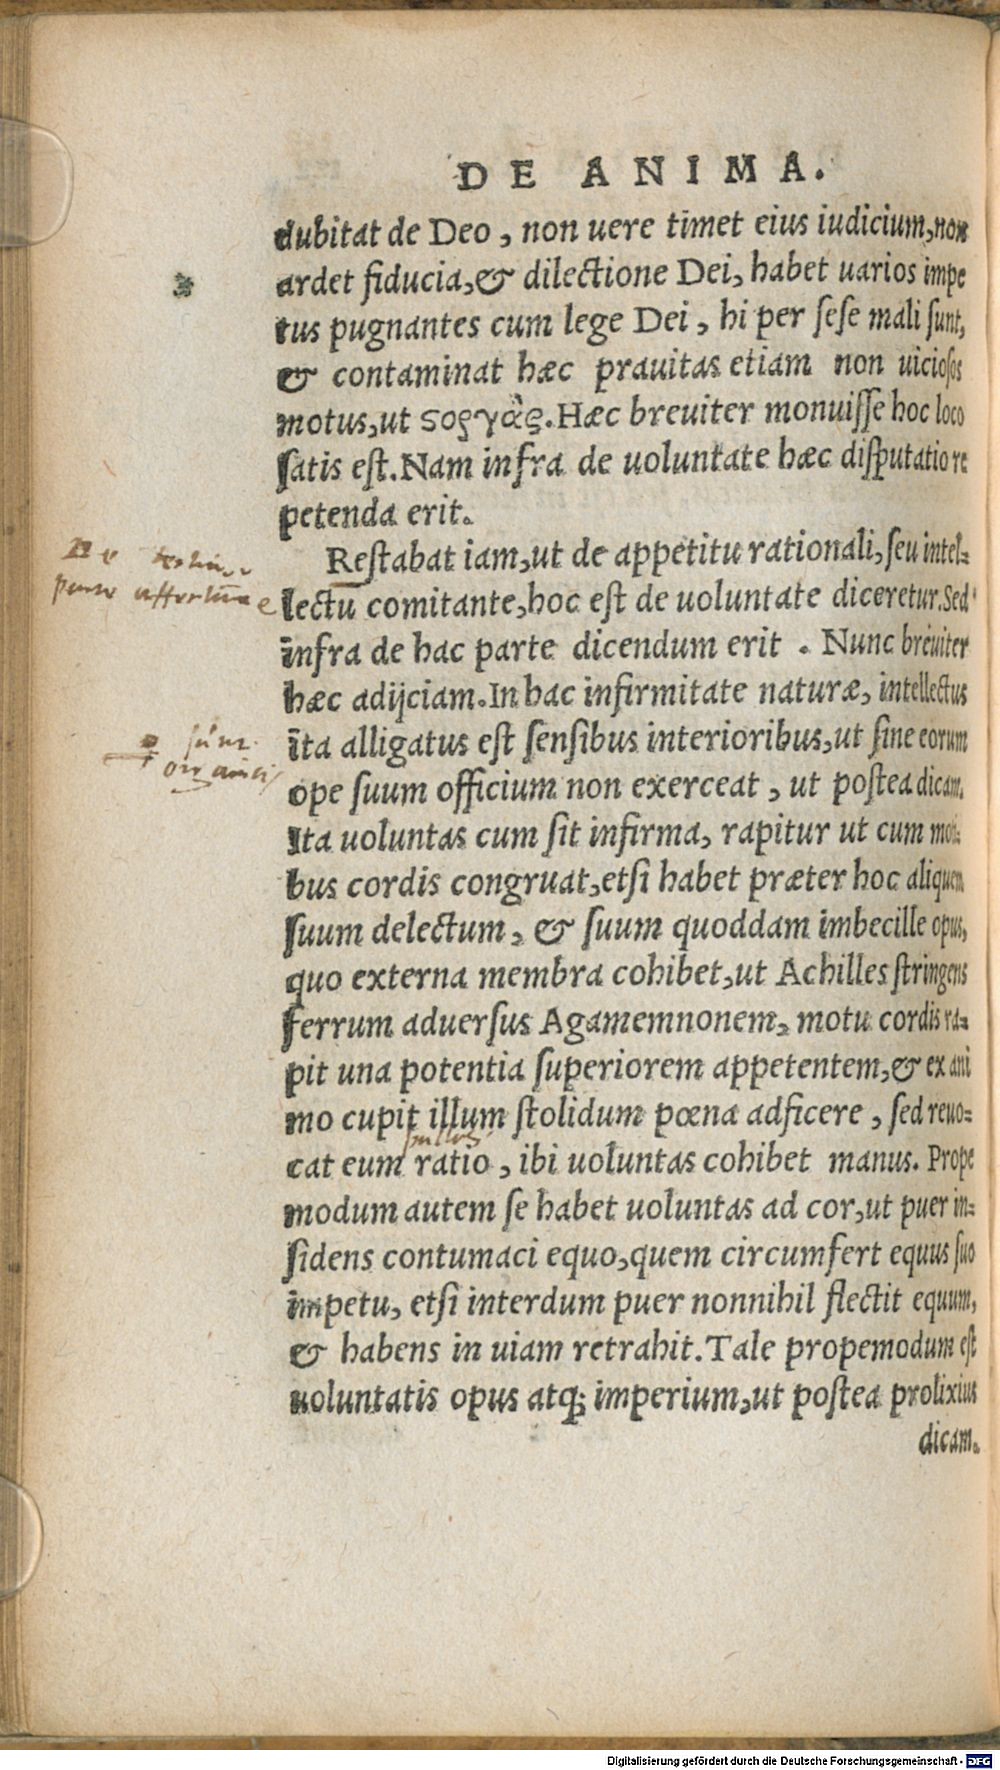 DE ANIMA.
dubitat de Deo, non uere timet eius iudicium, non
ardet fiducia, & dilectione Dei, habet uarios impe
tus pugnantes cum lege Dei, hi per sese mali sunt,
& contaminat hæc prauitas etiam non uiciosos
motus, ut ςοργὰς. Hæc breuiter monuisse hoc loco
satis est. Nam infra de uoluntate hæc disputatio re
petenda erit.
Restabat iam, ut de appetitu rationali, seu intel-
lectū comitante, hoc est de uoluntate diceretur. Sed
infra de hac parte dicendum erit. Nunc breuiter
hæc adijciam. In hac infirmitate naturæ, intellectus
ita alligatus est sensibus interioribus, ut sine eorum
ope suum officium non exerceat, ut postea dicam.
Ita uoluntas cum sit infirma, rapitur ut cum moti-
bus cordis congruat, etsi habet præter hoc aliquem
suum delectum, & suum quoddam imbecille opus,
quo externa membra cohibet, ut Achilles stringens
ferrum aduersus Agamemnonem, motu cordis ra-
pit una potentia superiorem appetentem, & ex ani
mo cupit illum stolidum pœna adficere, sed reuo-
cat eum ratio, ibi uoluntas cohibet manus. Prope
modum autem se habet uoluntas ad cor, ut puer in-
sidens contumaci equo, quem circumfert equus suo
impetu, etsi interdum puer nonnihil flectit equum,
& habens in uiam retrahit. Tale propemodum est
uoluntatis opus atq; imperium, ut postea prolixius
dicam.
Digitalisierung gefördert durch die Deutsche Forschungsgemeinschaft - DFG